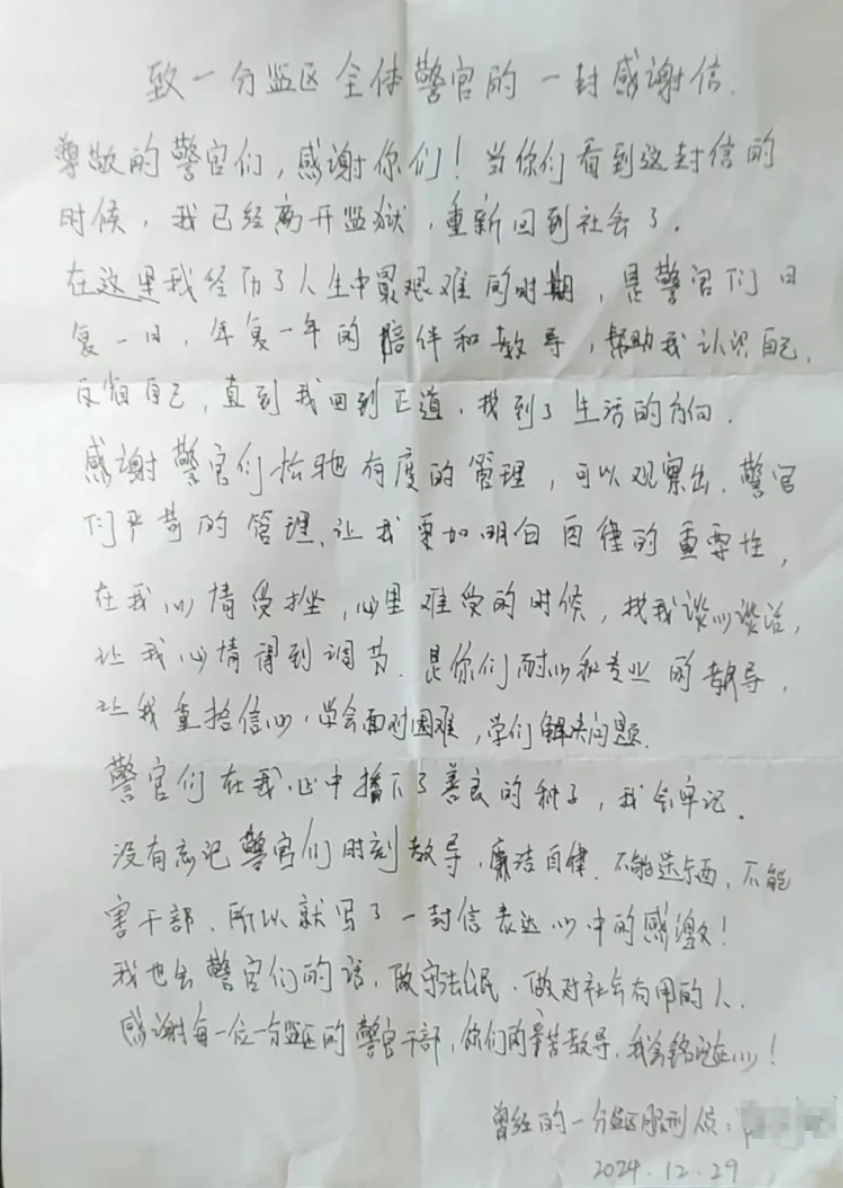 致一分监区全体警官的一封感谢信.
尊敬的警官们，感谢你们！当你们看到这封信的
时候，我已经离开监狱，重新回到社会了.
在这里我经历了人生中最艰难的时期，是警官们日
复一日，年复一年的陪伴和教导，帮助我认识自己，
反省自己，直到我回到正道，找到了生活的方向.
感谢警官们松驰有度的管理，可以观察出，警官
们严苛的管理、让我更加明白自律的重要性，
在我心情受挫，心里难受的时候，找我谈心谈话，
让我心情得到调节. 是你们耐心和专业的教导，
让我重拾信心，学会面对困难，学们解决问题.
警官们在我心中播下了善良的种子，我会牢记.
没有忘记警官们时刻教导，廉洁自律. 不能送东西，不能
害干部、所以就写了一封信表达心中的感激！
我也会警官们的话，做守法公民、做对社会有用的人.
感谢每一位一分监区的警官干部，你们的辛苦教导，我会铭记在心！
曾经的一分监区服刑人员：
2024.12.29